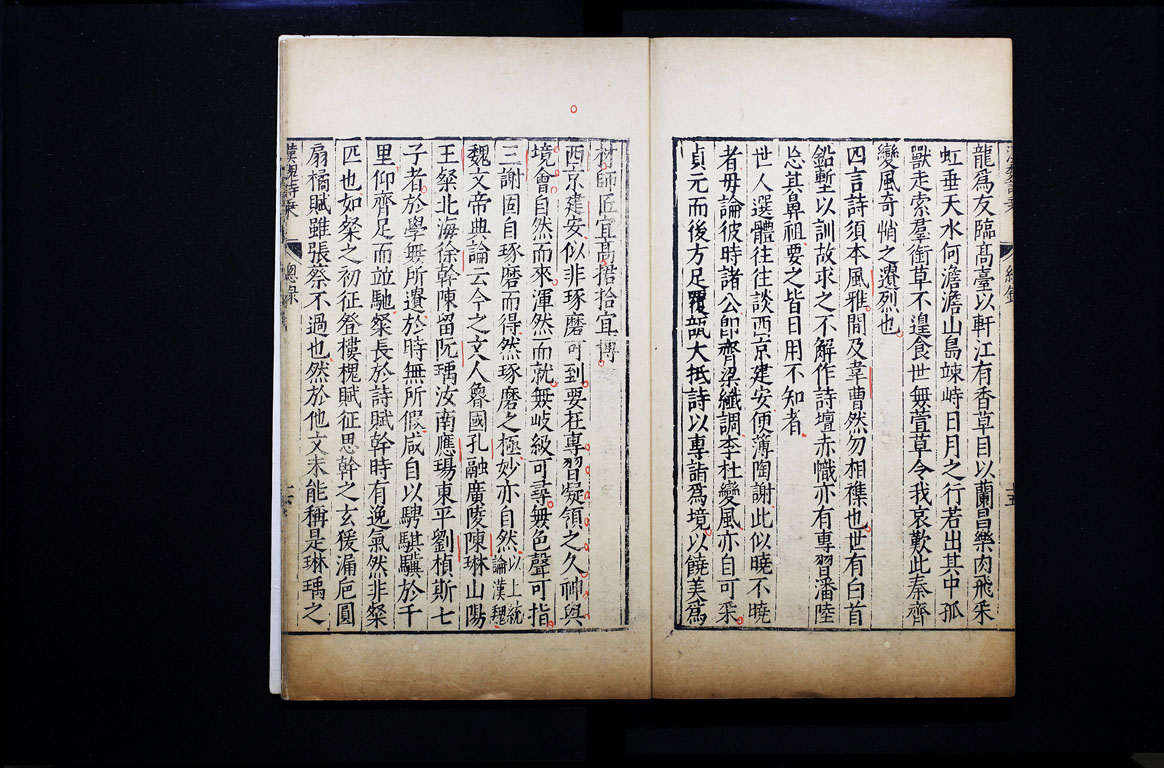 龍爲友臨髙臺以軒江有香草目以蘭昌樂肉飛釆
虹垂天水何澹澹山島竦峙日月之行若出其中孤
獸走索羣銜草不遑食世無萱草令我哀歎此秦齊
變風奇悄之遺烈也
四言詩須本風雅間及韋曹然勿相襍也世有白首
鉛塹以訓故求之不解作詩壇赤幟亦有專習潘陸
忘其鼻祖要之皆日用不知者
世人選體往往談西京建安便薄陶謝此似曉不曉
者毋論彼時諸公卽齊梁纖調李杜變風亦自可采
貞元而後方足覆瓿大抵詩以專詣爲境以饒美爲
材師匠宜髙捃拾宜博
西京建安似非琢磨可到要在專習凝領之久神與
境會自然而來渾然而就無岐級可尋無色聲可指
三謝固自琢磨而得然琢磨之極妙亦自然以上統論漢魏
魏文帝典論云今之文人魯國孔融廣陵陳琳山陽
王粲北海徐幹陳留阮瑀汝南應瑒東平劉楨斯七
子者於學無所遺於時無所假咸自以騁騏驥於千
里仰齊足而竝馳粲長於詩賦幹時有逸氣然非粲
匹也如粲之初征登樓槐賦征思幹之玄猨漏巵圓
扇橘賦雖張蔡不過也然於他文未能稱是琳瑀之
漢魏詩乗 總录